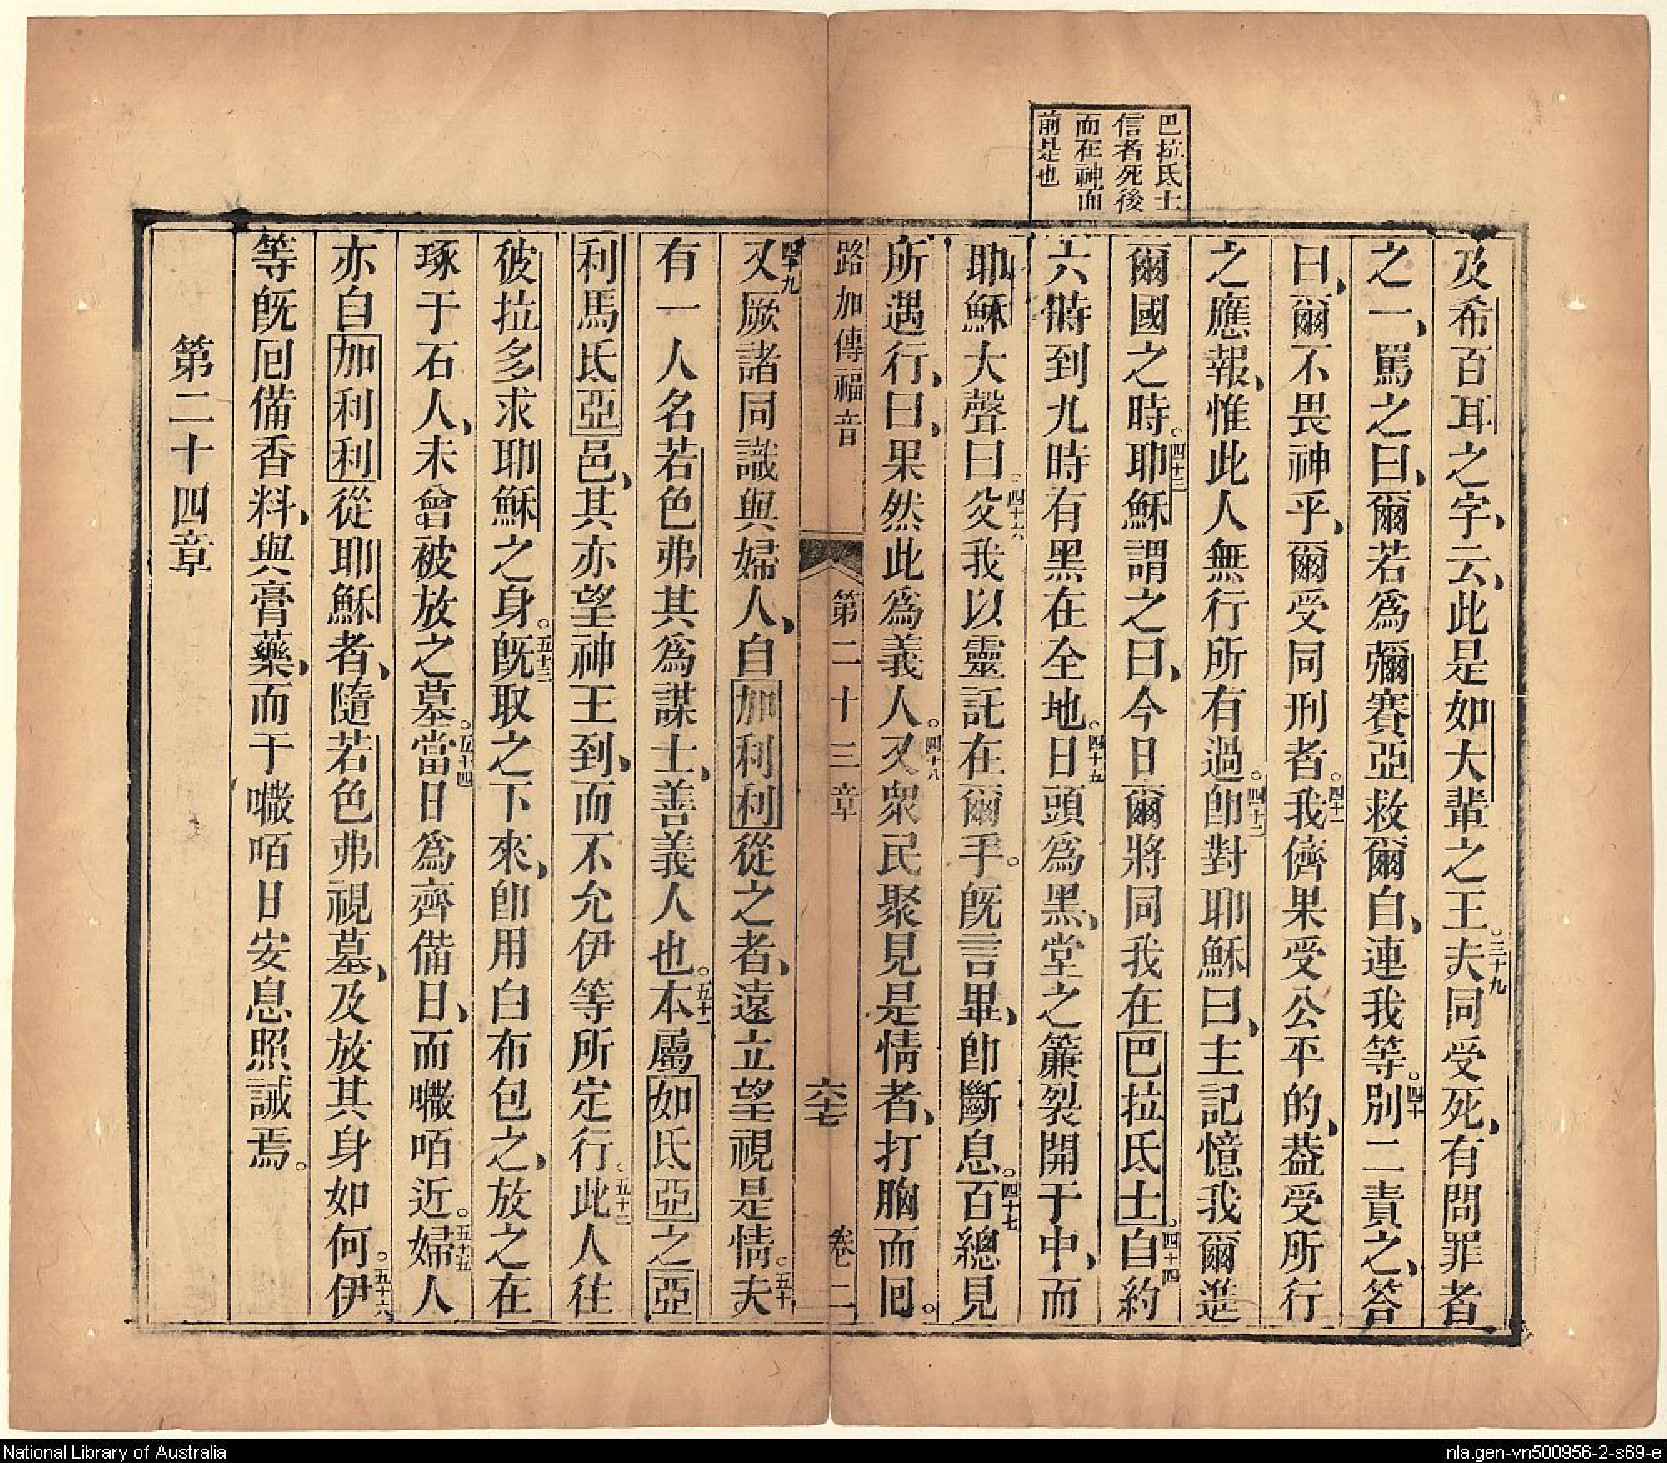 巴拉氐士
信者死後
而在神面
前是也
及希百耳之字、云、此是如大輩之王。三十九夫同受死、有問罪者
之一、罵之曰、爾若為彌賽亞救爾自、連我等。四十別二責之、答
曰、爾不畏神乎、爾受同刑者。四十一我儕果受公平的、葢受所行
之應報、惟此人無行所有過。四十二卽對耶穌曰、主記憶我爾進
爾國之時。四十三耶穌謂之曰、今日爾將同我在巴拉氐士。四十四自約
六時到九時有黑在全地。四十五日頭為黑、堂之簾裂開于中、而
耶穌大聲曰。四十六父我以靈託在爾手。旣言畢、卽斷息。四十七百總見
所遇行、曰、果然此為義人。四十八又衆民聚見是情者、打胸而囘。
路加傳福音 第二十三章 六十七 卷二
四十九又厥諸同識與婦人、自加利利從之者、遠立望視是情。五十夫
有一人名若色弗其為謀士、善義人也。五十一本屬如氐亞之亞
利馬氐亞邑、其亦望神王到、而不允伊等所定行。五十二此人往
彼拉多求耶穌之身。五十三旣取之下來、卽用白布包之、放之在
琢于石人、未曾被放之墓。五十四當日為齊備日、而𡃤咟近。五十五婦人
亦自加利利從耶穌者、隨若色弗視墓、及放其身如何。五十六伊
等旣囘備香料、與膏藥、而于𡃤咟日安息照誡焉。
第二十四章
National Library of Australia
nla.gen-vn500956-2-s69-e